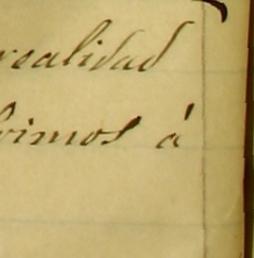 realidad
vimos á